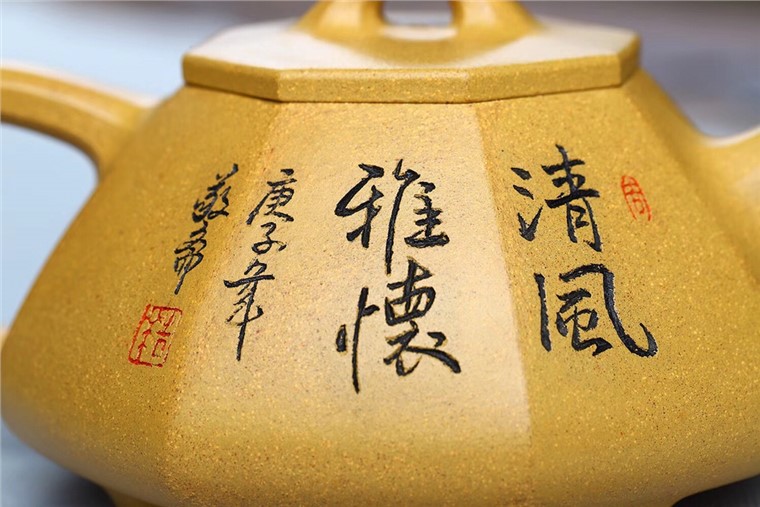 清風
雅懷
庚子年